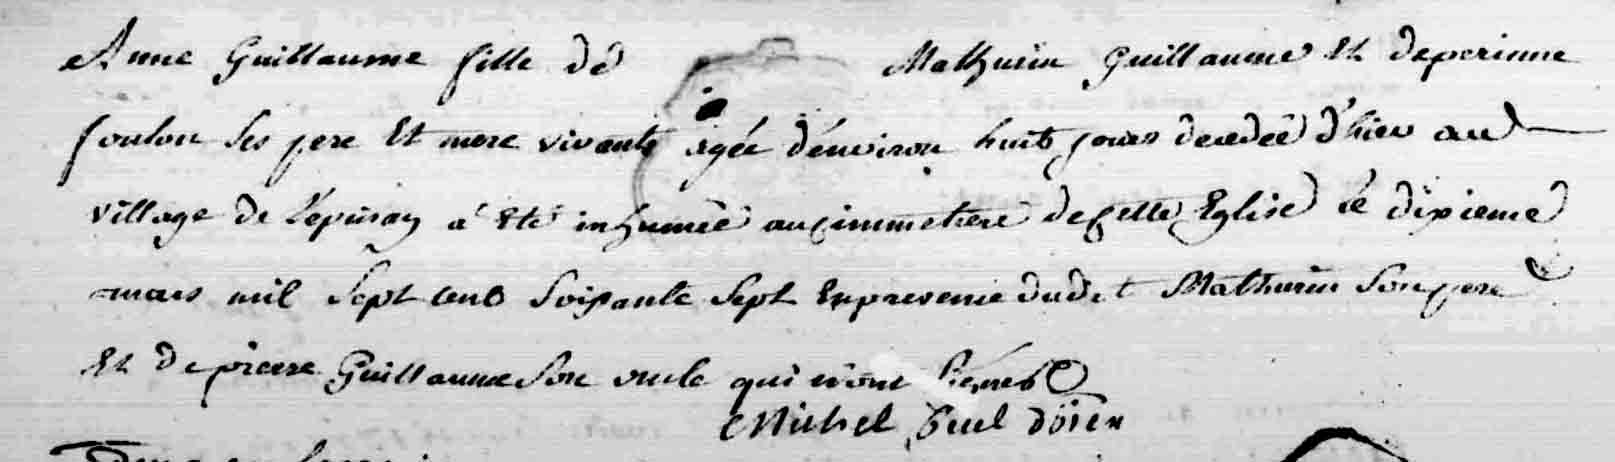 Anne Guillaume fille de Mathurin Guillaume Et deperinne
foulon ses pere Et mere vivants agée d'environ huit jours decedée d'hier au
village de L'epinay a Eté inhumée aucimmetiere decette Eglise le dixieme
mars mil Sept cent Soixante Sept Enpresence dudit Mathurin Sonpere
Et depierre Guillaume Son oncle qui n'ont Signés
Michel doien